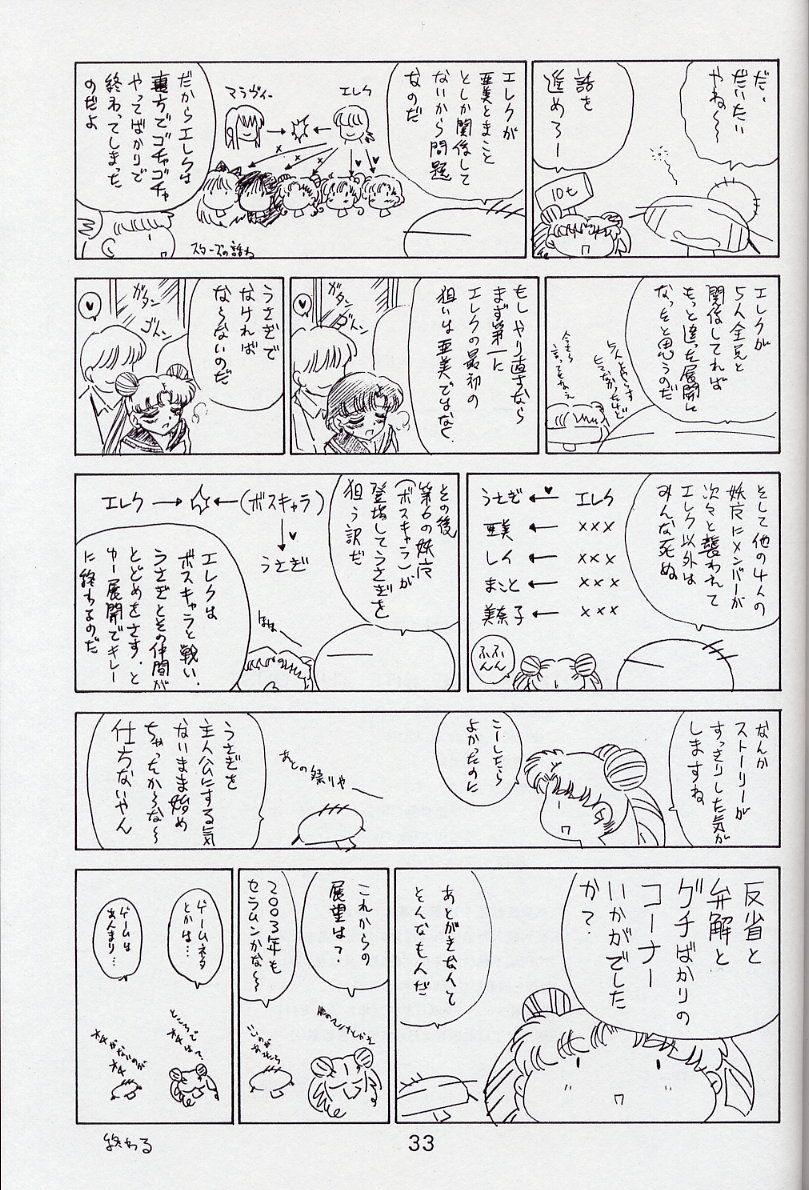 だ、
だいたい
やね～～
話を
進めろー
10t
エレクが
亜美とまこと
としか関係して
ないから問題
なのだ
マラヴィー
エレク
だからエレクは
裏方でゴチャゴチャ
やってばかりで
終わってしまった
のだよ
スターズの話ね
エレクが
5人全員と
関係してれば
もっと違った展開に
なったと思うのだ
もしやり直すなら
まず第一に
エレクの最初の
狙いは亜美ではなく、
ガタン
ゴトン
うさぎで
なければ
な～らないのだ
ガタン
ゴトン
そして他の4人の
妖魔にメンバーが
次々と襲われて
エレク以外は
みんな死ぬ
うさぎ ← エレク
亜美 ← ×××
レイ ← ×××
まこと ← ×××
美奈子 ← ×××
ふふん
その後
第6の妖魔
(ボスキャラ)が
登場してうさぎを
狙う訳だ
エレク → ← (ボスキャラ)
うさぎ
エレクは
ボスキャラと戦い、
うさぎとその仲間が
とどめをさす、と
ゆー展開でキレー
に終わるのだ
なんか
ストーリーが
すっきりした気が
しますね
こーしたら
よかったのに
あとの祭りや
うさぎを
主人公にする気
ないまま始め
ちゃったからな～
仕方ないやん
反省と
弁解と
グチばかりの
コーナー
いかがでした
か？
あとがきなんて
そんなもんだ
これからの
展望は？
2003年も
セラムンかな～～
ゲームネタ
とかは…
ゲームは
あんまり…
ところで
オチは？
オチがないのが
オチ
終わる
33